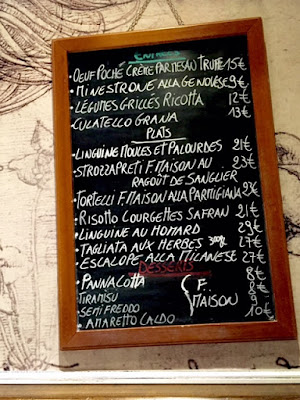 ENTREES
• OEUF POCHÉ CRÈME PARMESAN TRUFFE 15€
• MINESTRONE ALLA GENOVESE 9€
• LÉGUMES GRILLÉS RICOTTA 12€
• CULATELLO GRANA 13€
PLATS
• LINGUINE MOULES ET PALOURDES 21€
• STROZZAPRETI F. MAISON AU 23€
RAGOÛT DE SANGLIER
• TORTELLI F. MAISON ALLA PARMIGIANA 23€
• RISOTTO COURGETTES SAFRAN 21€
• LINGUINE AU HOMARD 29€
• TAGLIATA AUX HERBES 27€
• ESCALOPE ALLA MILANESE 27€
DESSERTS
• PANNACOTTA 8€
TIRAMISU F. MAISON 8
SEMIFREDDO 9
• AMARETTO CALDO 10€